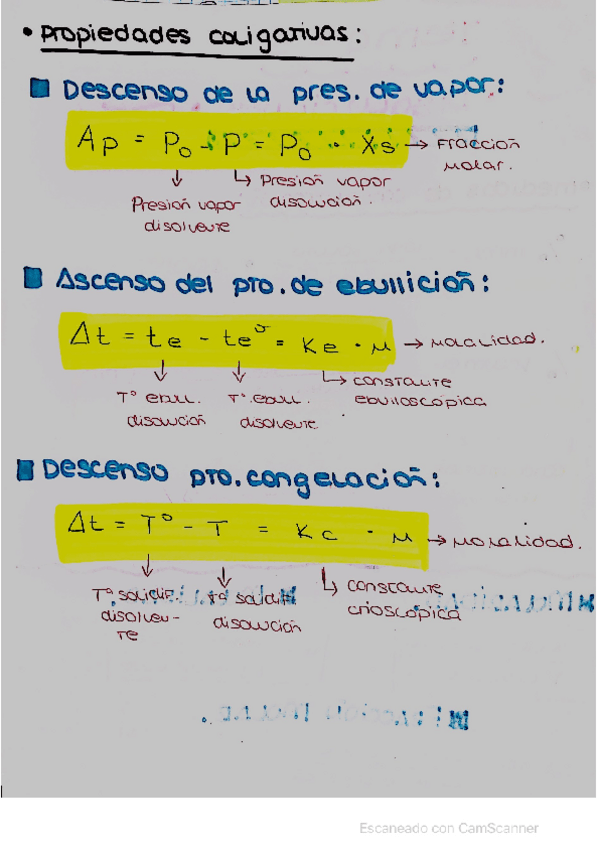 • Propiedades coligativas:
Descenso de la pres. de vapor:
Δp = P₀ - P = P₀ · Xs → Fracción
molar.
Presión vapor
disolvente
Presión vapor
disolución.
Ascenso del pto. de ebullición:
Δt = te - te° = Ke · m → molalidad.
Tº ebull.
disolución
Tº ebull.
disolvente
constante
ebulloscópica
Descenso pto. congelación:
Δt = T° - T = Kc · m → molalidad.
Tº solidif.
disolven-
te
Tº solidif.
disolución
constante
crioscópica
Escaneado con CamScanner